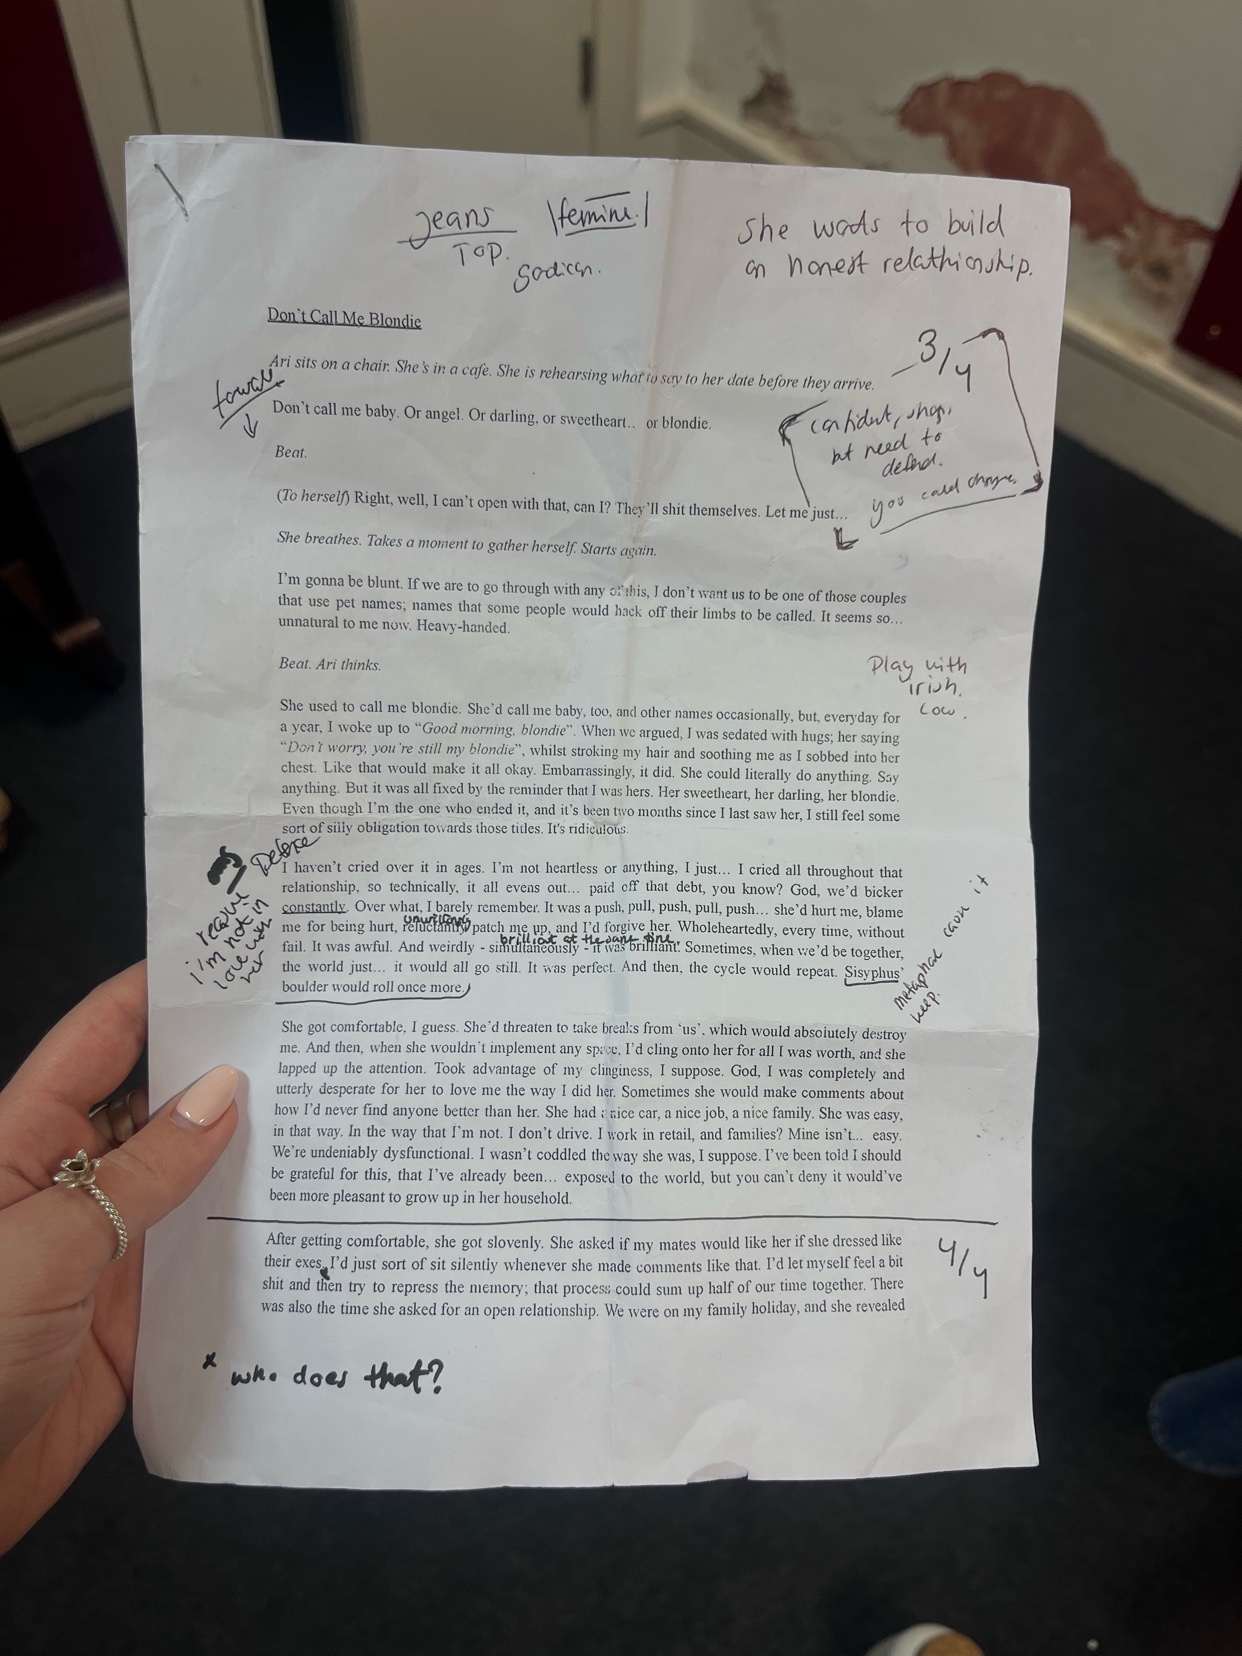 Jeans
TOP.
femine.
She wats to build
an honest relathionship.
Don't Call Me Blondie
3/4
Ari sits on a chair. She's in a cafe. She is rehearsing what to say to her date before they arrive.
Don't call me baby. Or angel. Or darling, or sweetheart.. or blondie.
confident,
but need to
defend.
you could change.
Beat.
(To herself) Right, well, I can't open with that, can I? They'll shit themselves. Let me just...
She breathes. Takes a moment to gather herself. Starts again.
I'm gonna be blunt. If we are to go through with any of this, I don't want us to be one of those couples
that use pet names; names that some people would hack off their limbs to be called. It seems so...
unnatural to me now. Heavy-handed.
Beat. Ari thinks.
Play with
irish.
Low.
She used to call me blondie. She'd call me baby, too, and other names occasionally, but, everyday for
a year, I woke up to "Good morning, blondie". When we argued, I was sedated with hugs; her saying
"Don't worry, you're still my blondie", whilst stroking my hair and soothing me as I sobbed into her
chest. Like that would make it all okay. Embarrassingly, it did. She could literally do anything. Say
anything. But it was all fixed by the reminder that I was hers. Her sweetheart, her darling, her blondie.
Even though I'm the one who ended it, and it's been two months since I last saw her, I still feel some
sort of silly obligation towards those titles. It's ridiculous.
Defence
I'm not in
love with
her
I haven't cried over it in ages. I'm not heartless or anything, I just... I cried all throughout that
relationship, so technically, it all evens out... paid off that debt, you know? God, we'd bicker
constantly. Over what, I barely remember. It was a push, pull, push, pull, push... she'd hurt me, blame
unwillingly
me for being hurt, reluctantly patch me up, and I'd forgive her. Wholeheartedly, every time, without
brilliant at the same time.
fail. It was awful. And weirdly - simultaneously - it was brilliant. Sometimes, when we'd be together,
the world just... it would all go still. It was perfect. And then, the cycle would repeat. Sisyphus'
boulder would roll once more.
metaphor
keep.
She got comfortable, I guess. She'd threaten to take breaks from 'us', which would absolutely destroy
me. And then, when she wouldn't implement any space, I'd cling onto her for all I was worth, and she
lapped up the attention. Took advantage of my clinginess, I suppose. God, I was completely and
utterly desperate for her to love me the way I did her. Sometimes she would make comments about
how I'd never find anyone better than her. She had a nice car, a nice job, a nice family. She was easy,
in that way. In the way that I'm not. I don't drive. I work in retail, and families? Mine isn't... easy.
We're undeniably dysfunctional. I wasn't coddled the way she was, I suppose. I've been told I should
be grateful for this, that I've already been... exposed to the world, but you can't deny it would've
been more pleasant to grow up in her household.
4/4
After getting comfortable, she got slovenly. She asked if my mates would like her if she dressed like
their exes. I'd just sort of sit silently whenever she made comments like that. I'd let myself feel a bit
shit and then try to repress the memory; that process could sum up half of our time together. There
was also the time she asked for an open relationship. We were on my family holiday, and she revealed
* who does that?